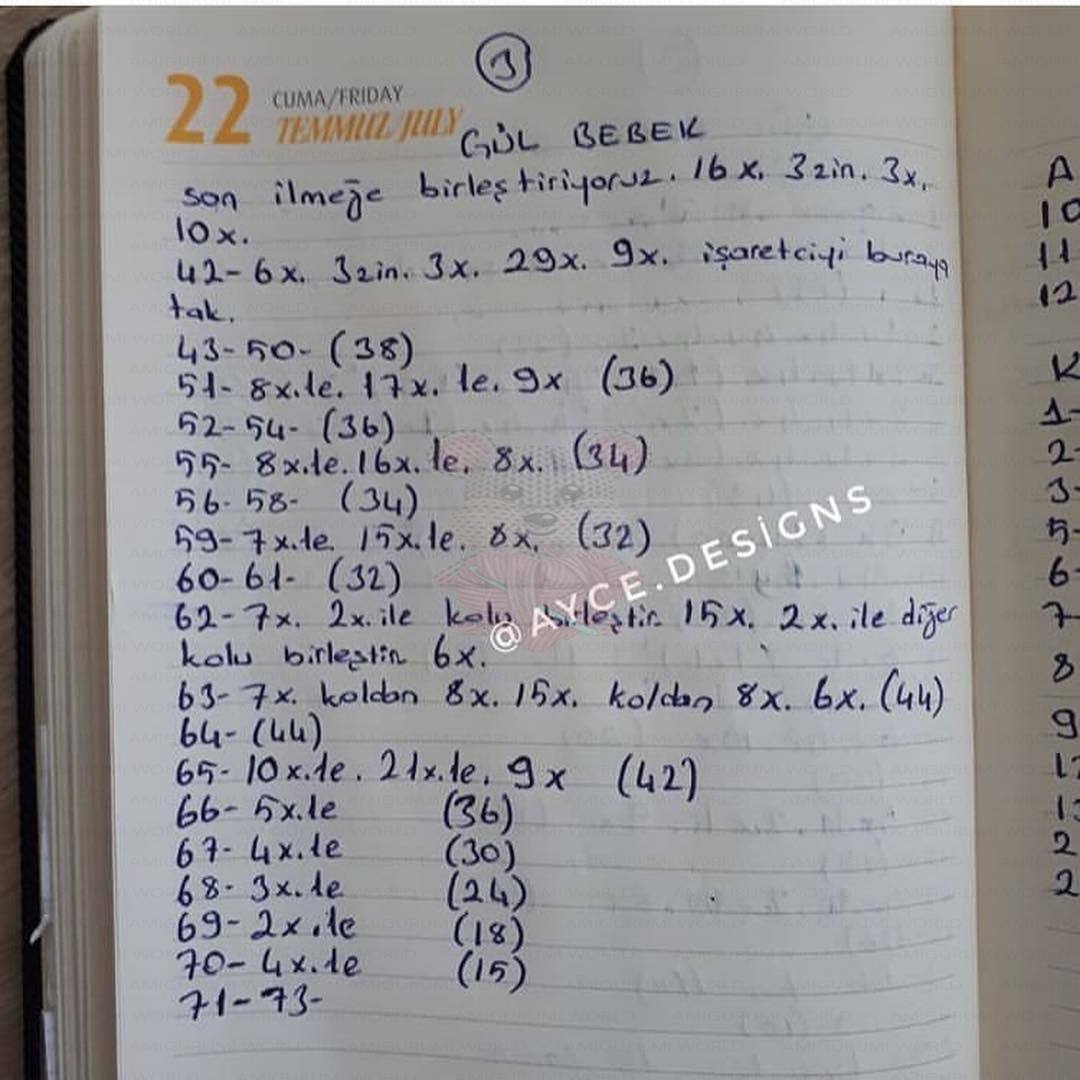 3
22 CUMA/FRIDAY
TEMMUZ/JULY
GÜL BEBEK
son ilmeğe birleştiriyoruz. 16x. 3zin. 3x.
10x.
42- 6x. 3zin. 3x. 29x. 9x. işaretciyi buraya
tak.
43-50- (38)
51- 8x.te. 17x. te. 9x (36)
52-54- (36)
55- 8x.te.16x.te. 8x. (34)
56-58- (34)
59-7x.te. 15x.te. 8x. (32)
60-61- (32)
62-7x. 2x.ile kolu birleştir 15x. 2x. ile diğer
kolu birleştir 6x.
63-7x. koldan 8x. 15x. koldan 8x. 6x. (44)
64- (44)
65-10x.te. 21x.te. 9x (42)
66- 5x.te (36)
67- 4x.te (30)
68- 3x.te (24)
69-2x.te (18)
70-4x.te (15)
71-73-
@AYCE.DESİGNS
A
10
11
12
K
1-
2-
3-
5-
6-
7-
8
9
2
2